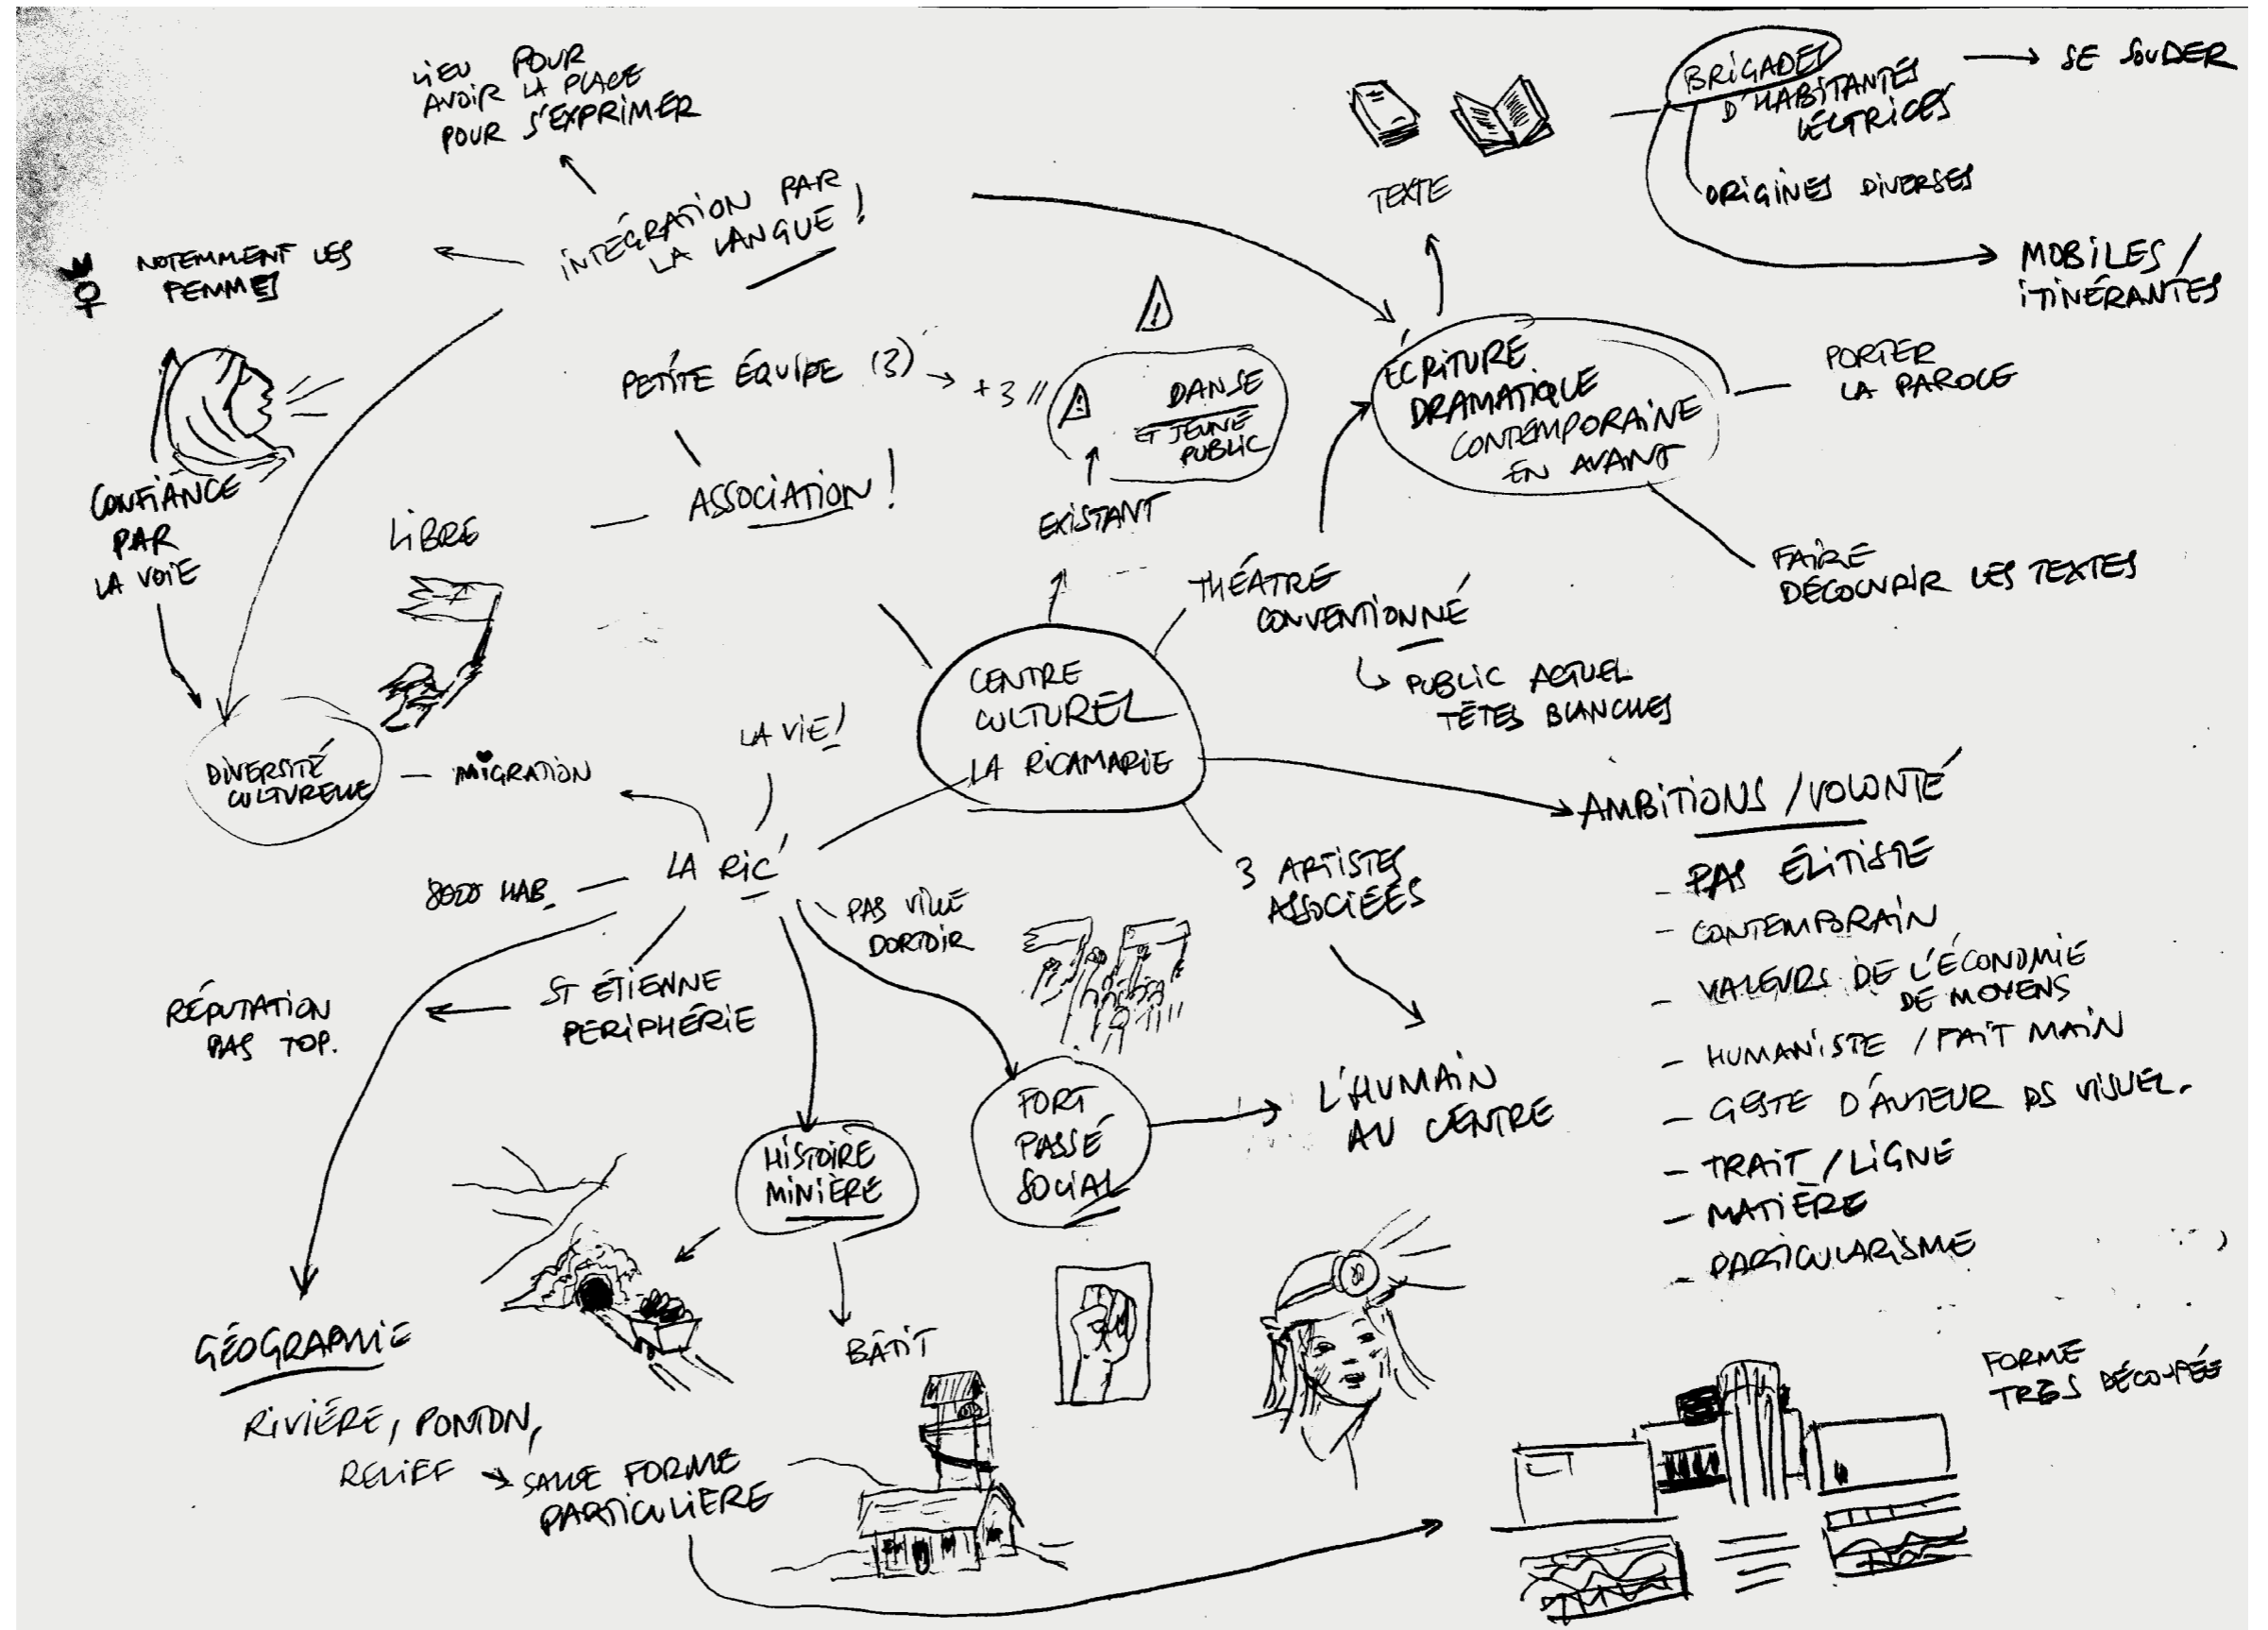 LIEU POUR
AVOIR LA PLACE
POUR S'EXPRIMER
INTÉGRATION PAR
LA LANGUE !
NOTEMMENT LES
FEMMES
CONFIANCE
PAR
LA VOIE
PETITE ÉQUIPE (3) → +3 //
DANSE
ET JEUNE
PUBLIC
ASSOCIATION !
LIBRE
EXISTANT
TEXTE
BRIGADES
D'HABITANTES
LECTRICES
→ SE SOUDER
ORIGINES DIVERSES
MOBILES /
ITINÉRANTES
ÉCRITURE
DRAMATIQUE
CONTEMPORAINE
EN AVANT
PORTER
LA PAROLE
FAIRE
DÉCOUVRIR LES TEXTES
THÉATRE
CONVENTIONNÉ
PUBLIC ACTUEL
TÊTES BLANCHES
CENTRE
CULTUREL
LA RICAMARIE
DIVERSITÉ
CULTURELLE
MIGRATION
LA VIE !
LA RIC'
8020 HAB.
PAS VILLE
DORTOIR
ST ÉTIENNE
PÉRIPHÉRIE
RÉPUTATION
PAS TOP.
3 ARTISTES
ASSOCIÉES
AMBITIONS / VOLONTÉ
- PAS ÉLITISTE
- CONTEMPORAIN
- VALEURS DE L'ÉCONOMIE
DE MOYENS
- HUMANISTE / FAIT MAIN
- GESTE D'AUTEUR DS VISUEL.
- TRAIT / LIGNE
- MATIÈRE
- PARTICULARISME
FORT
PASSÉ
SOCIAL
L'HUMAIN
AU CENTRE
HISTOIRE
MINIÈRE
BÂTIT
GÉOGRAPHIE
RIVIÉRE, PONTON,
RELIEF → SALLE FORME
PARTICULIÈRE
FORME
TRÈS DÉCOUPÉE